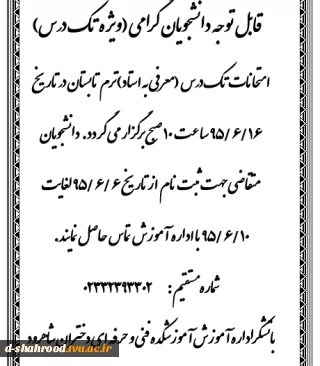 قابل توجه دانشجویان گرامی (ویژه تک درس)
امتحانات تک درس (معرفی به استاد) ترم تابستان در تاریخ
۹۵/۶/۱۶ ساعت ۱۰ صبح برگزار می گردد. دانشجویان
متقاضی جهت ثبت نام از تاریخ ۹۵/۶/۶ لغایت
۹۵/۶/۱۰ با اداره آموزش تماس حاصل نمایند.
شماره مستقیم: ۰۲۳۳۲۳۹۳۳۰۲
با تشکر اداره آموزش آموزشکده فنی و حرفه ای دختران شاهرود
d-shahrood.tvu.ac.ir